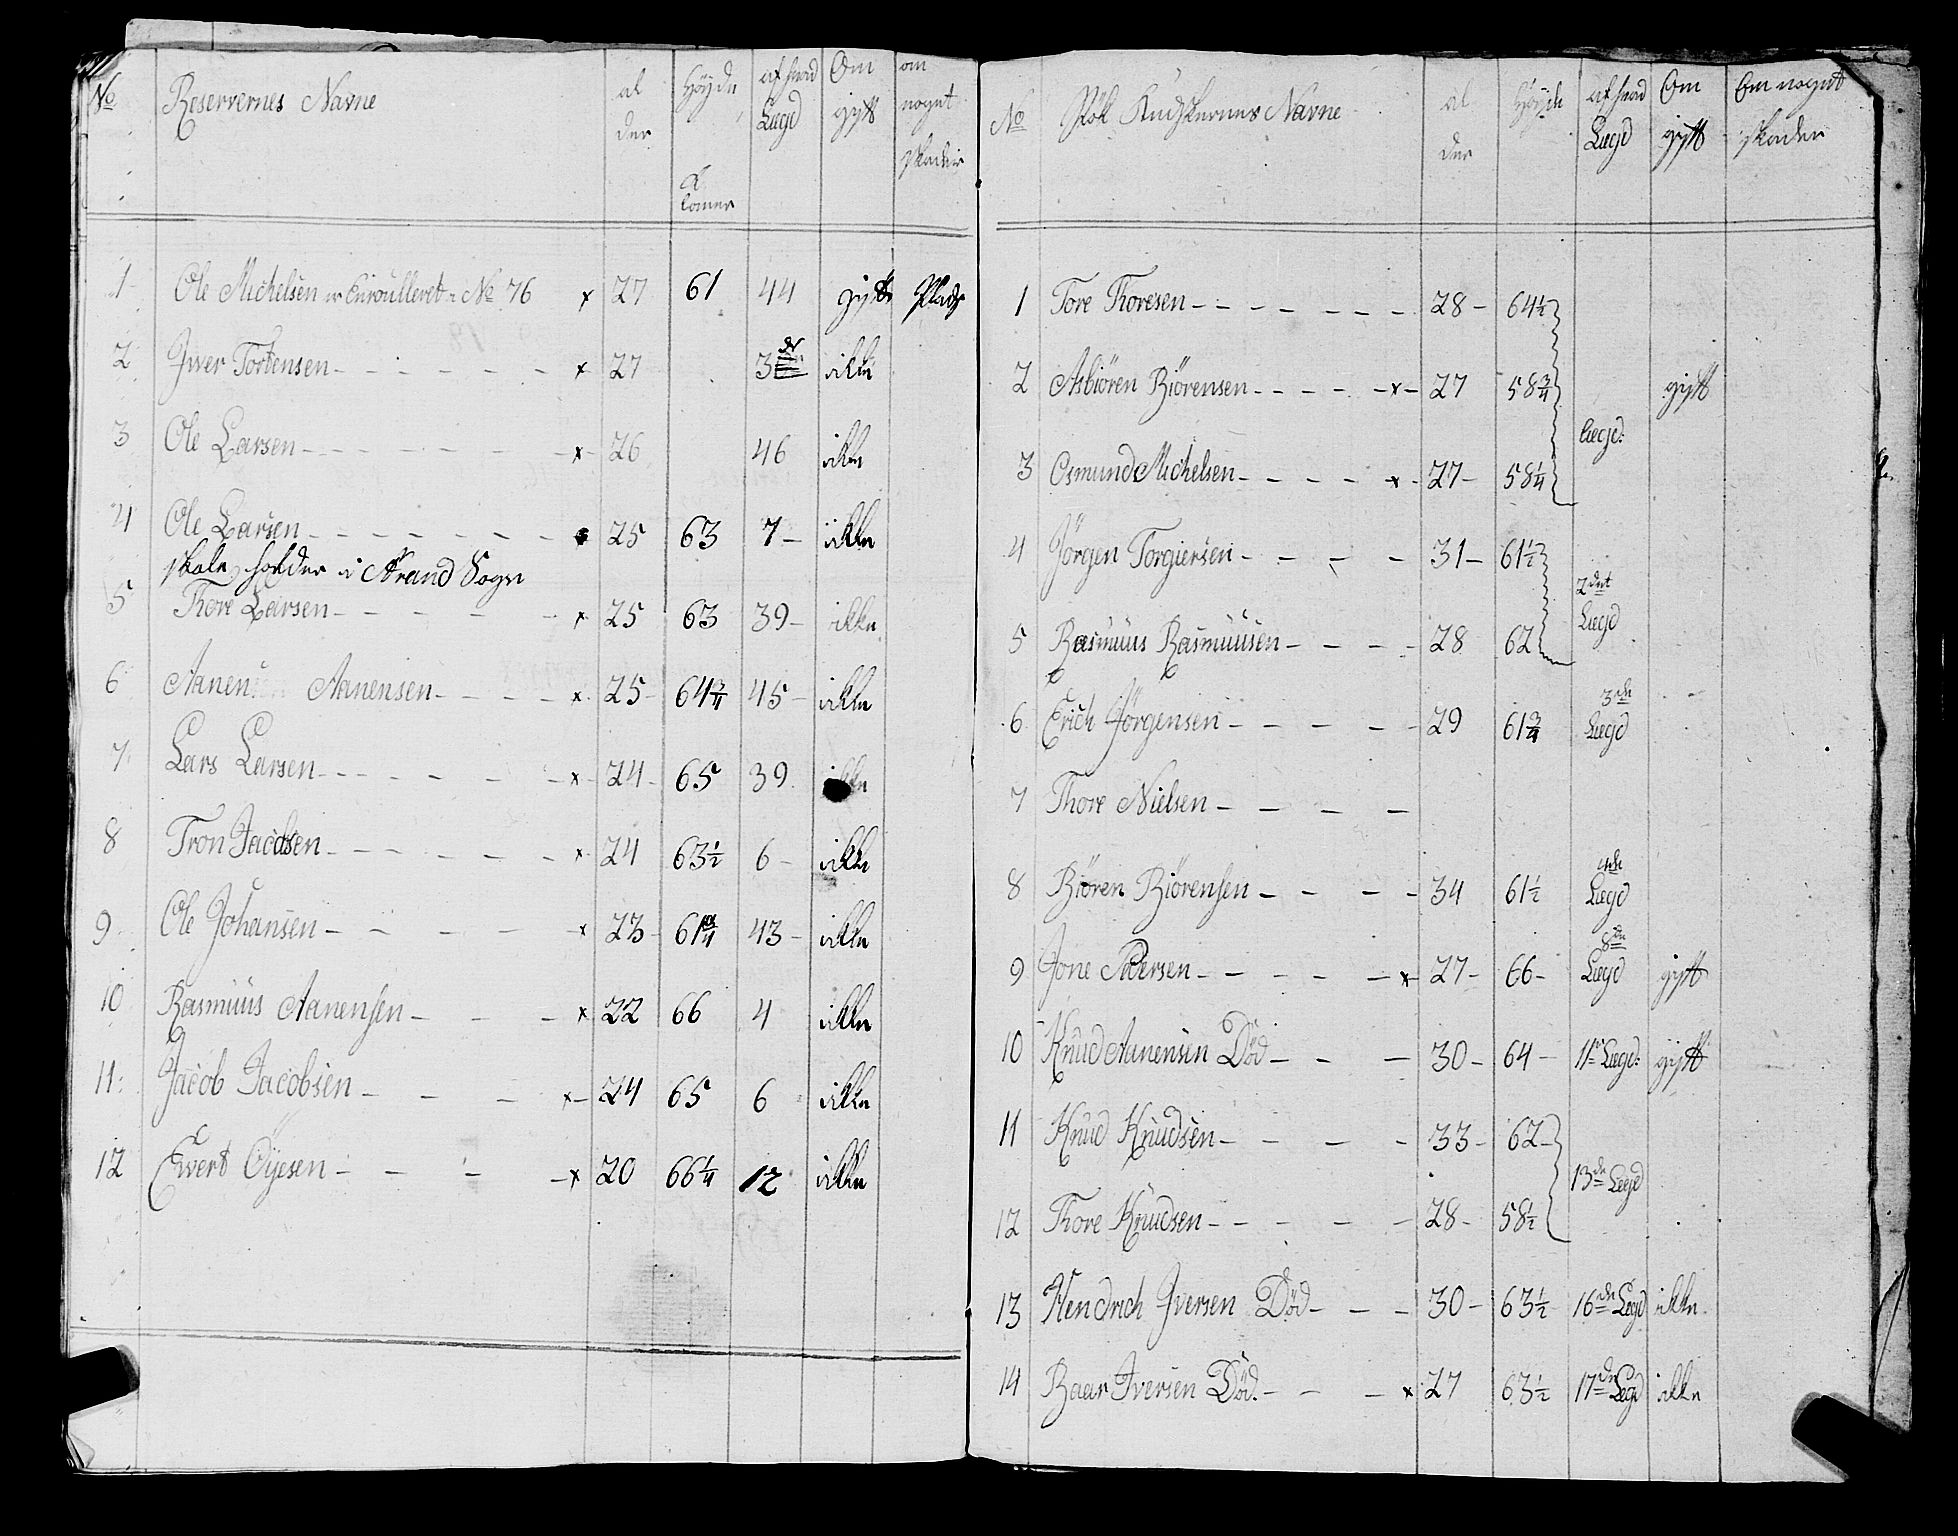 No Reservernes Navne al der Höyde Tomer af hvad Lægd Om gift om noget skader
1 Ole Michelsen er Enroulleret No 76 x 27 61 44 gift
2 Iver Tortensen x 27 ikke
3 Ole Larsen x 26 46 ikke
4 Ole Larsen 25 63 7 ikke
skole holder i Strand Sogn
5 Thore Larsen x 25 63 39 ikke
6 Aanen Aanensen x 25 64 3/4 45 ikke
7 Lars Larsen x 24 65 39 ikke
8 Tron Jacobsen x 24 63 1/2 6 ikke
9 Ole Johansen x 23 61 3/4 43 ikke
10 Rasmuus Aanensen x 22 66 4 ikke
11 Jacob Jacobsen x 24 65 6 ikke
12 Ewert Öÿesen x 20 66 1/4 12 ikke
No Navne al der Höyde af hvad Lægd Om gift Om noget skader
1 Tore Thoresen 28 64 1/2
2 Asbiören Biörensen x 27 58 3/4 gift
Lægd:
3 Osmund Michelsen x 27 58 1/4
4 Jörgen Torgiersen 31 61 1/2
2det Lægd
5 Rasmuus Rasmuusen 28 62
6 Erich Jörgensen 29 61 3/4 3de Lægd
7 Thore Nielsen
8 Biören Biörensen 34 61 1/2 4de Lægd
9 Jone Pedersen x 27 66 8de Lægd gift
10 Knud Aanensen Död 30 64 11te Lægd: gift
11 Knud Knudsen 33 62
13de Lægd
12 Thore Knudsen 28 58 1/2
13 Hendrich Iversen Död 30 63 1/2 16de Lægd ikke
14 Baar Iversen Död x 27 63 1/2 17de Lægd ikke